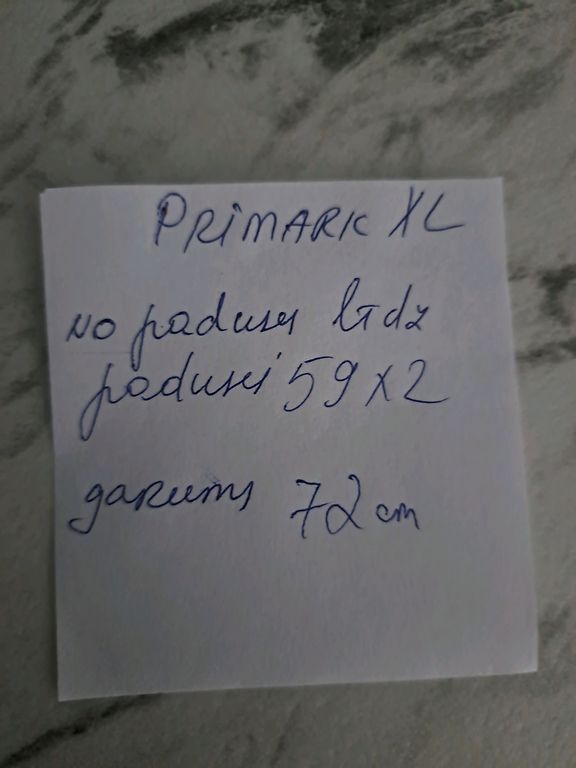 PRIMARK XL
no paduses līdz
padusei 59 x 2
garums 72 cm